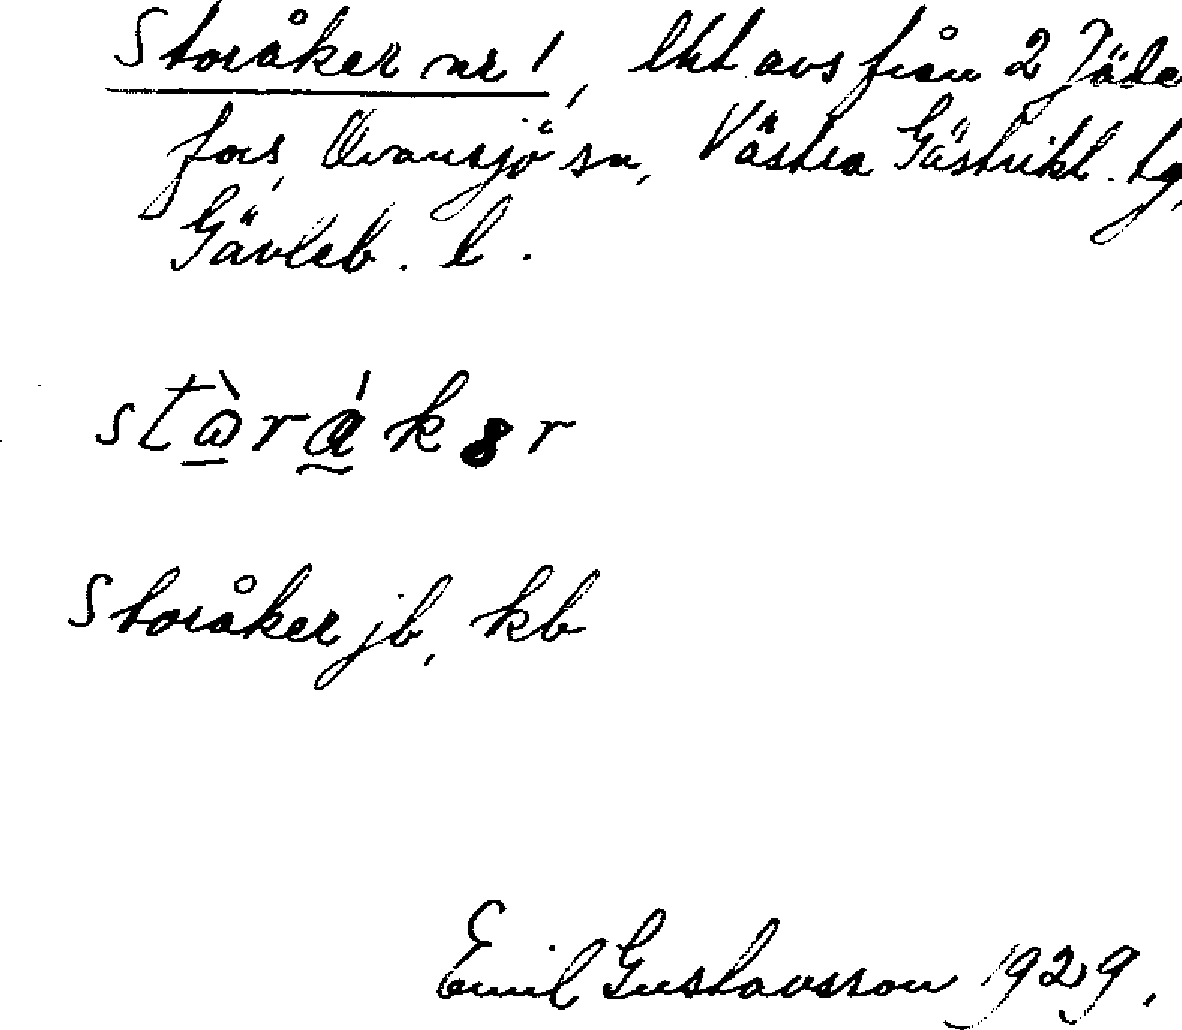 Storåker nr 1, lht avs från 2 Jäde
fors, Ovansjö sn, Västra Gästrikl. tg,
Gävleb. l.
Storåker jb, kb
Emil Gustavsson 1929.